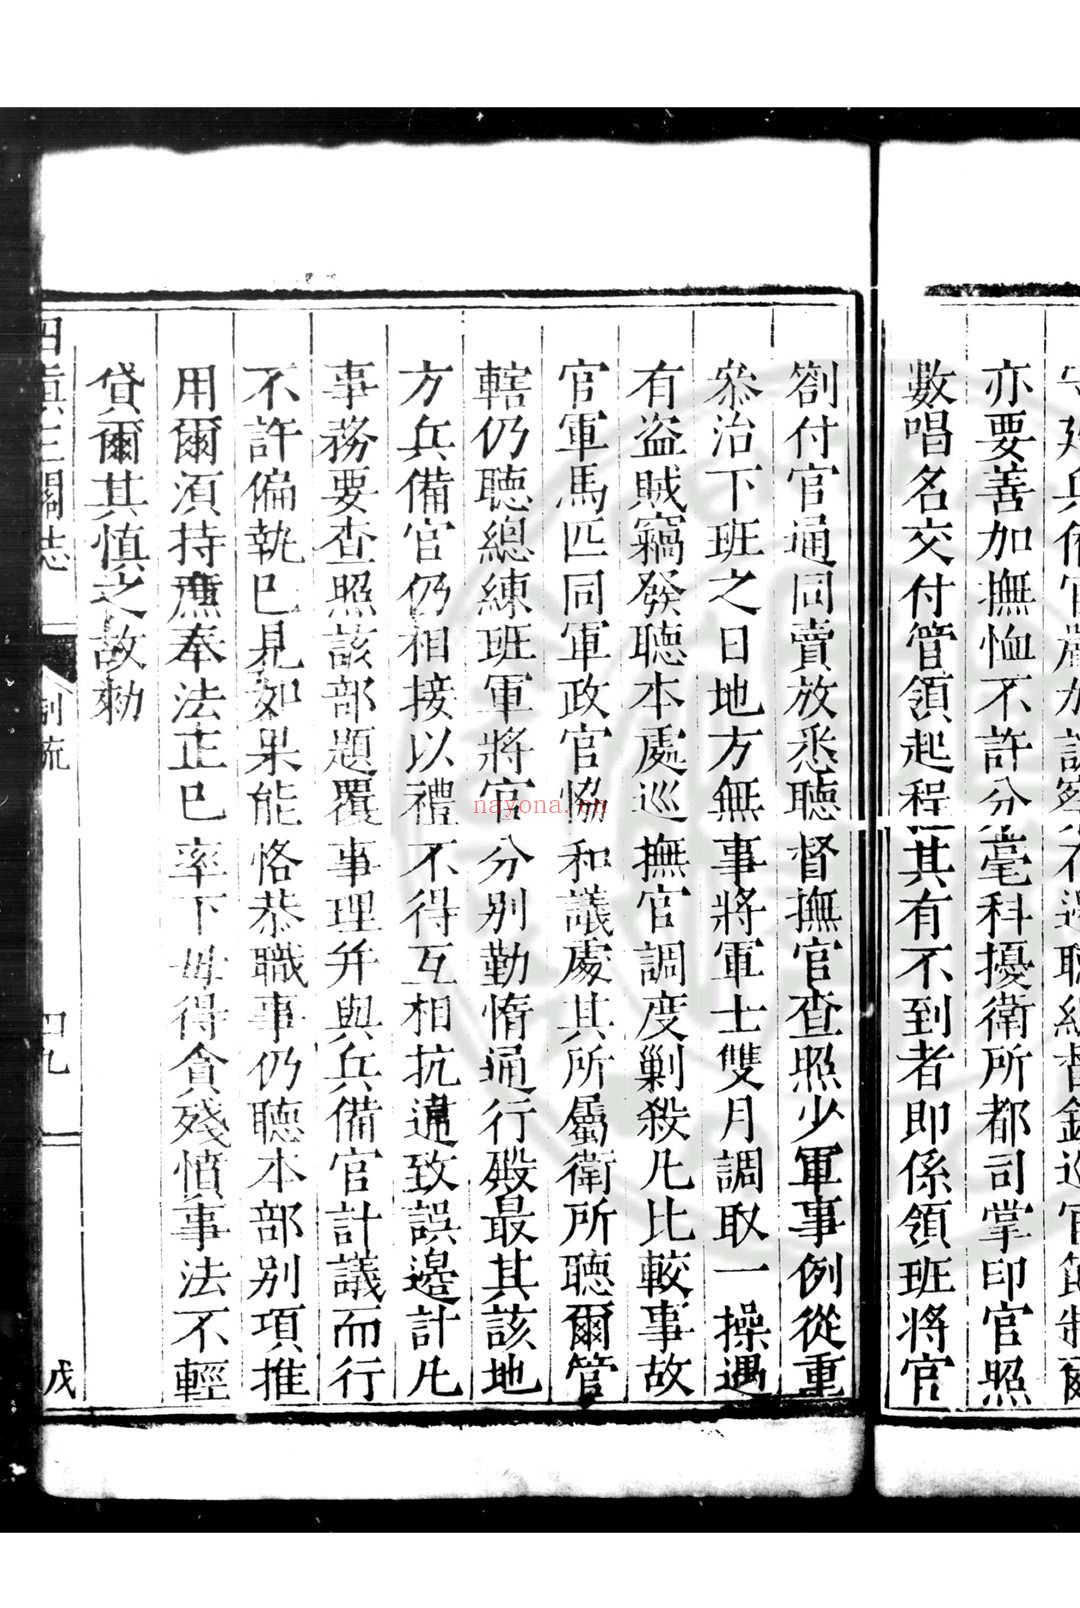 守廵兵備官嚴加
亦要善加撫恤不許分毫科擾衛所都司掌印官照
數唱名交付管領起程其有不到者即係領班將官
劄付官通同賣放悉聽督撫官查照少軍事例從重
叅治下班之日地方無事將軍士雙月調取一操遇
有盗賊竊發聽本處巡撫官調度剿殺凡比較事故
官軍馬匹同軍政官恊和議處其所屬衛所聽爾管
轄仍聽總練班軍將官分別勤惰通行殿最其該地
方兵備官仍相接以禮不得互相抗違致誤邊計凡
事務要查照該部題覆事理并與兵備官計議而行
不許偏執已見如果能恪恭職事仍聽本部别項推
用爾湏持亷奉法正已率下毋得貪殘僨事法不輕
貸爾其慎之故勅
四鎮三關志
制疏
四九
戊
nayona.cn